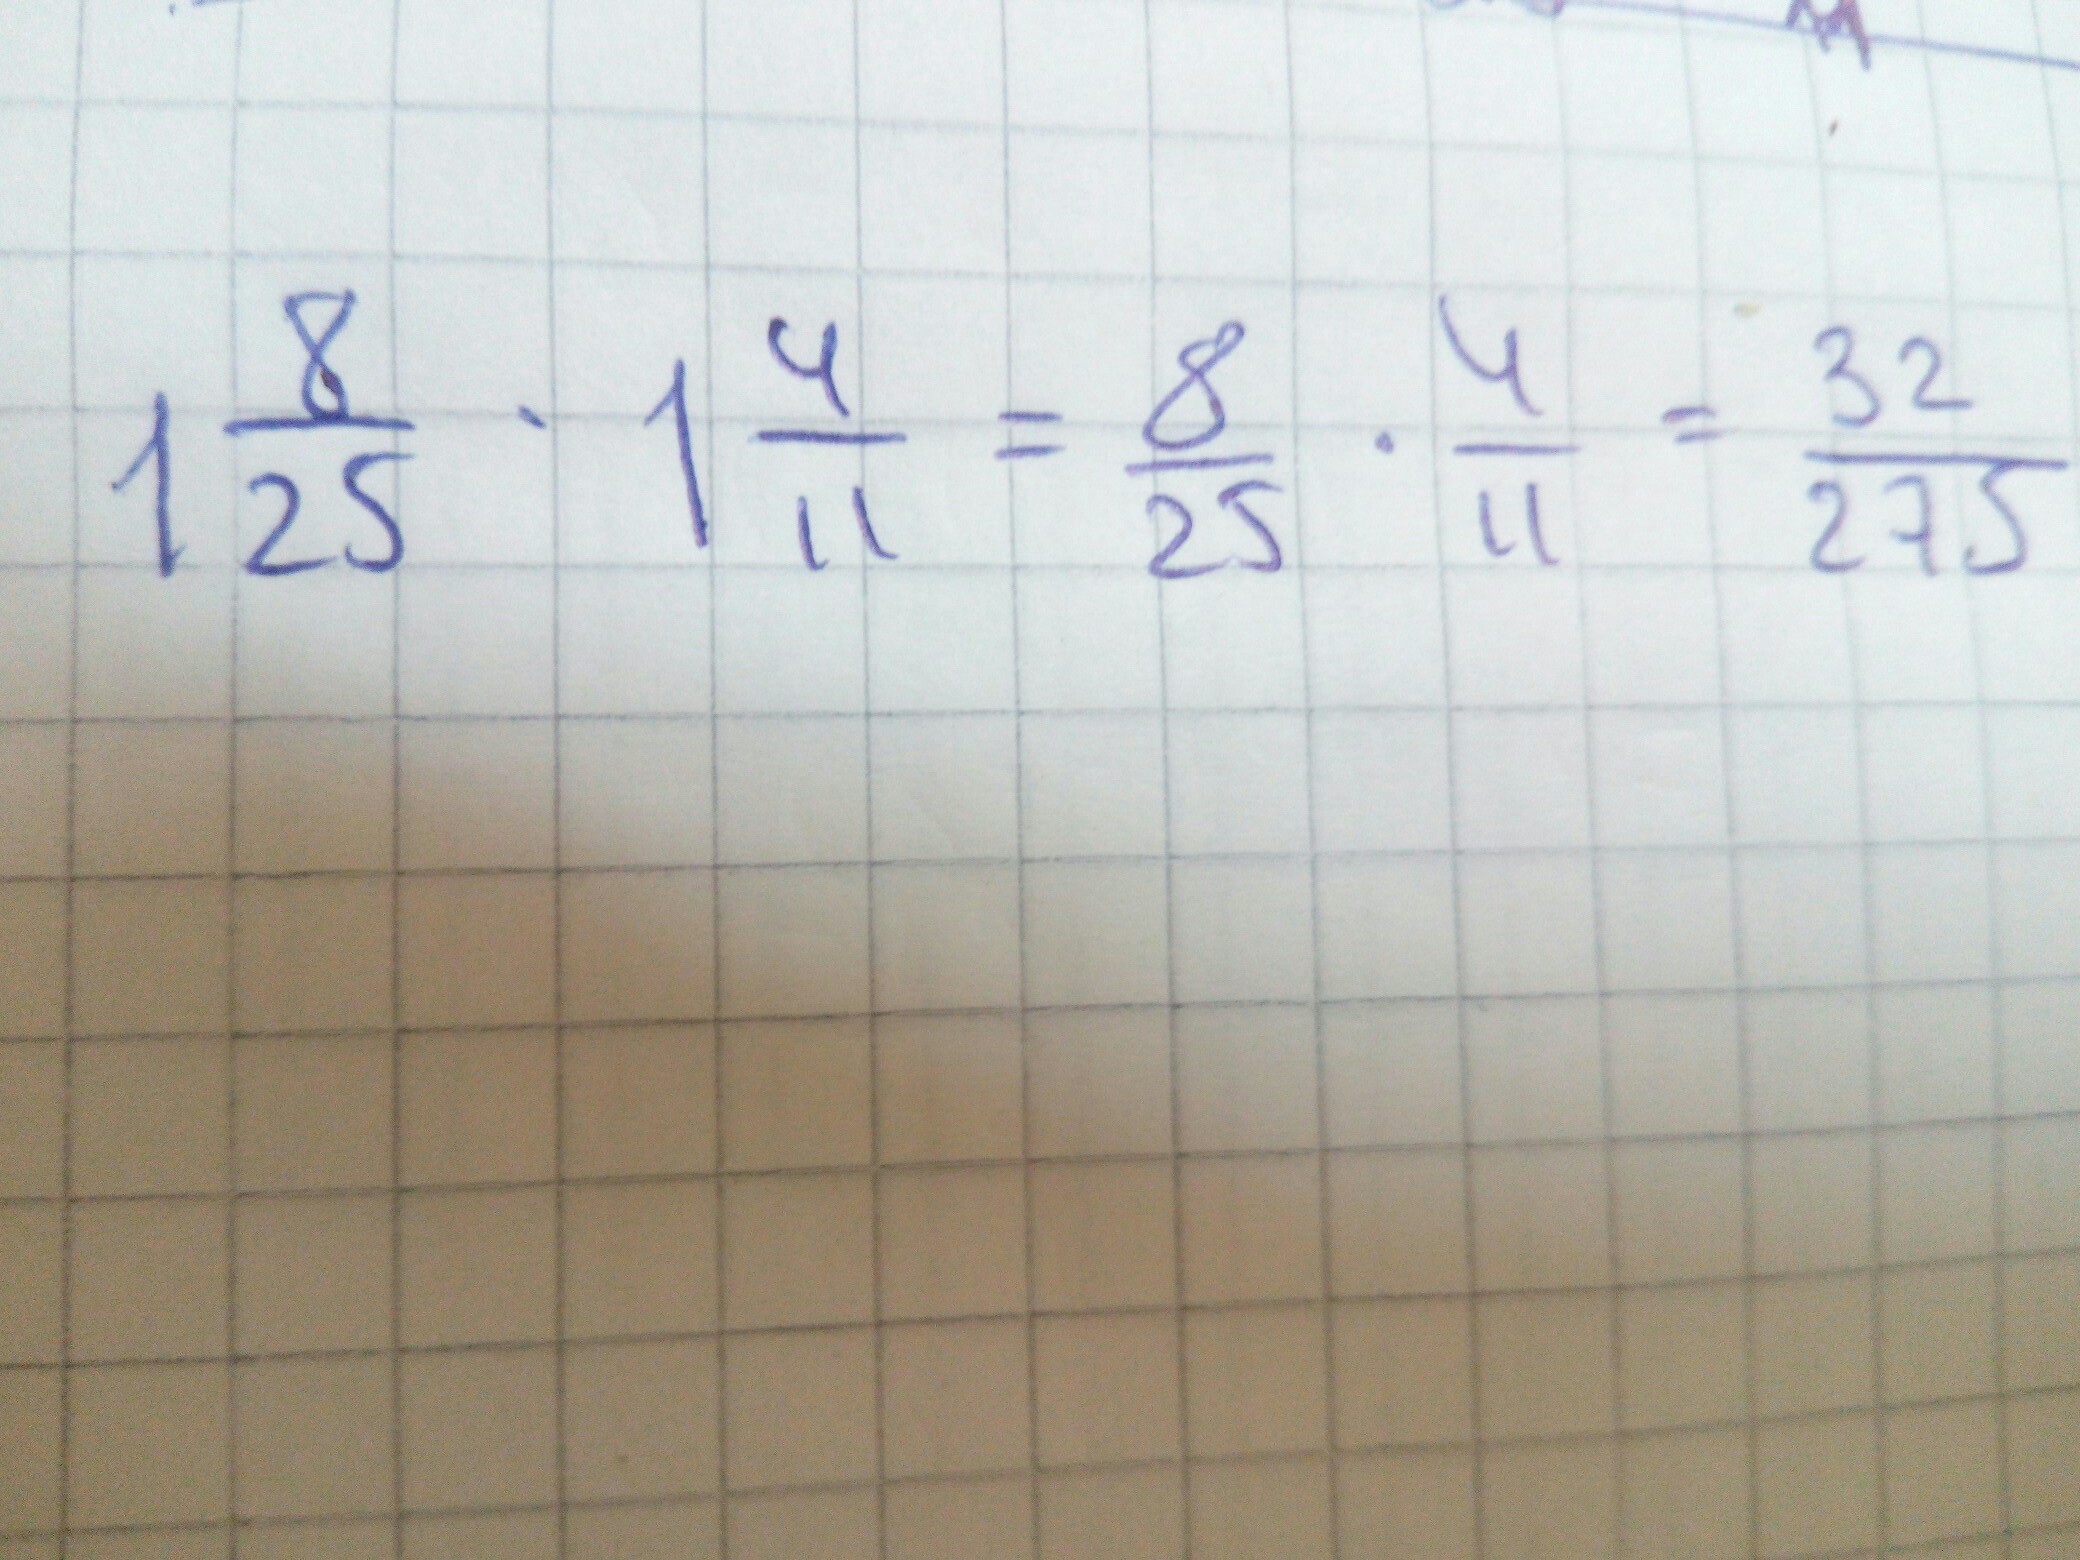 1 8/25 · 1 4/11 = 8/25 · 4/11 = 32/275